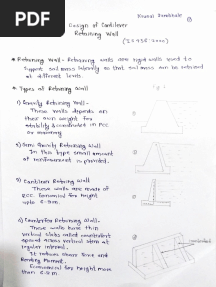 PDF
Design of Cantilever
Retaining Wall
Krunal Dembhakr
(IS 456-2000)
* Retaining Wall - Retaining walls are rigid walls used to
support soil mass laterally so that soil mass can be retained
at different levels.
* Types of Retaining Wall
1) Gravity Retaining Wall -
These walls depends on
their own weight for
stability & constructed in PCC
or masonry
2) Semi Gravity Retaining Wall
In this type small amount
of reinforcement is provided.
3) Cantilever Retaining Wall
These walls are made of
RCC. Economical for height
upto 6-8m.
4) Counterfort Retaining Wall -
These walls have thin
vertical slabs called counterfort
spaced across vertical stem at
regular interval.
It reduces Shear Force and
Bending Moment.
Economical for height more
than 6-8 m